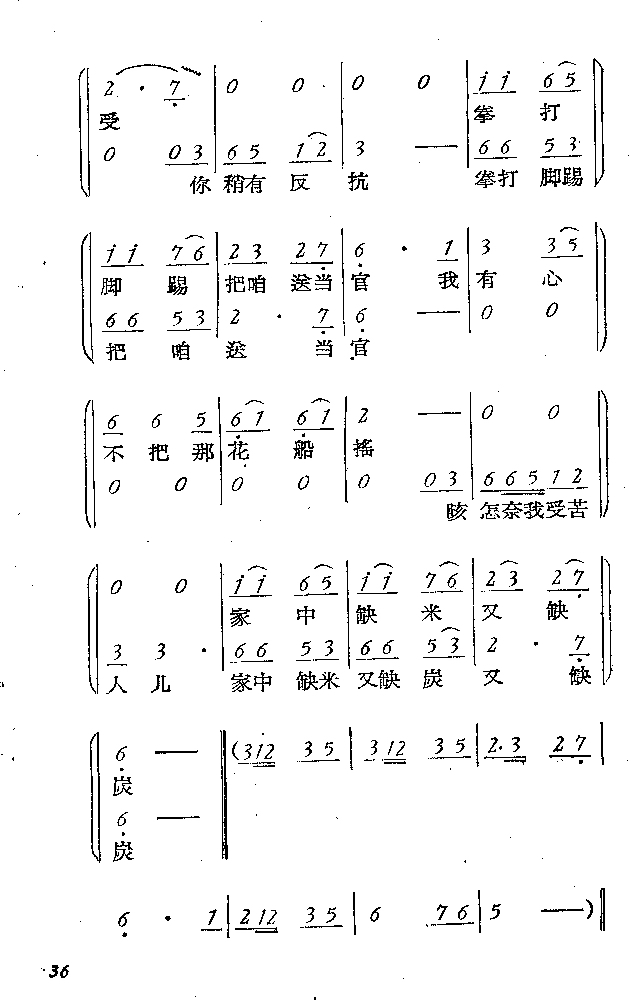 2 · 7 | 0 0 | 0 0 | i i 6 5
受 拳 打
0 0 3 | 6 5 1 2 | 3 — | 6 6 5 3
你 稍有 反 抗 拳打 脚踢
i i 7 6 | 2 3 2 7 | 6 · 1 | 3 3 5
脚 踢 把咱 送当 官 我 有 心
6 6 5 3 | 2 · 7 | 6 — | 0 0
把 咱 送 当 官
6 6 5 | 6 1 6 1 | 2 — | 0 0
不 把 那 花 船 摇
0 0 | 0 0 | 0 0 3 | 6 6 5 1 2
咳 怎奈我受苦
0 0 | i i 6 5 | i i 7 6 | 2 3 2 7
家 中 缺 米 又 缺
3 3 · | 6 6 5 3 | 6 6 5 3 | 2 · 7
人 儿 家中 缺米 又缺 炭 又 缺
6 — ‖ (3 1 2 3 5 | 3 1 2 3 5 | 2 · 3 2 7 |
炭
6 —
炭
6 · 1 | 2 1 2 3 5 | 6 7 6 | 5 —) ‖
36